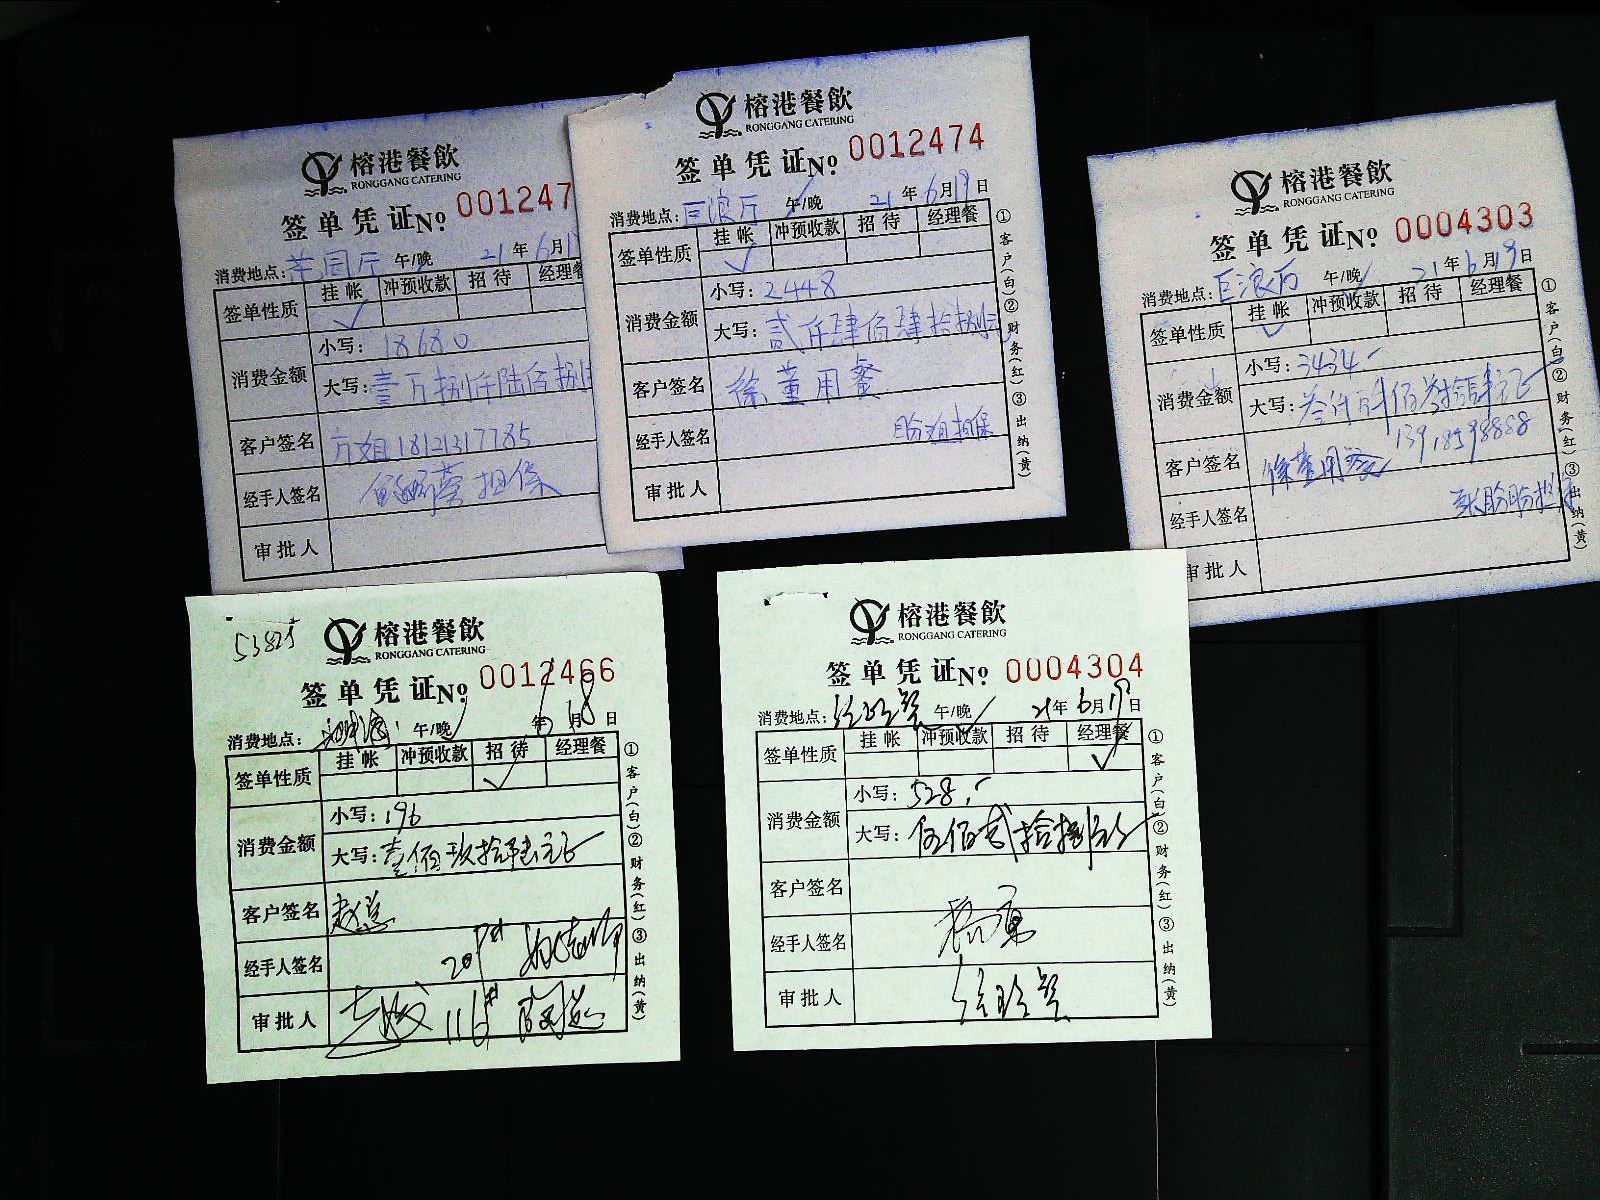 榕港餐飲
RONGGANG CATERING
签单凭证 No. 001247
消费地点: 午/晚 21年6月1
签单性质 挂帐 冲预收款 招待 经理餐
消费金额 小写: 18680
大写: 壹万捌仟陆佰捌
客户签名 方姐 18121317785
经手人签名 担保
审批人
榕港餐飲
RONGGANG CATERING
签单凭证 No. 0012474
消费地点: 巨浪厅 午/晚 21年6月19日
签单性质 挂帐 冲预收款 招待 经理餐
消费金额 小写: 2448
大写: 贰仟肆佰肆拾捌元
客户签名 徐董用餐
经手人签名 盼姐担保
审批人
①客户(白)②财务(红)③出纳(黄)
榕港餐飲
RONGGANG CATERING
签单凭证 No. 0004303
消费地点: 巨浪厅 午/晚 21年6月19日
签单性质 挂帐 冲预收款 招待 经理餐
消费金额 小写: 3434-
大写: 叁仟肆佰叁拾肆元正
客户签名 徐董用餐 13918598888
经手人签名 张盼盼担
审批人
①客户(白)②财务(红)③出纳(黄)
53825
榕港餐飲
RONGGANG CATERING
签单凭证 No. 0012466
消费地点: 午/晚 年 月18日
签单性质 挂帐 冲预收款 招待 经理餐
消费金额 小写: 196
大写: 壹佰玖拾陆元正
客户签名 赵总
经手人签名 20#
审批人 116#
①客户(白)②财务(红)③出纳(黄)
榕港餐飲
RONGGANG CATERING
签单凭证 No. 0004304
消费地点: 午/晚 21年6月19日
签单性质 挂帐 冲预收款 招待 经理餐
消费金额 小写: 528.-
大写: 伍佰贰拾捌元正
客户签名
经手人签名
审批人
①客户(白)②财务(红)③出纳(黄)